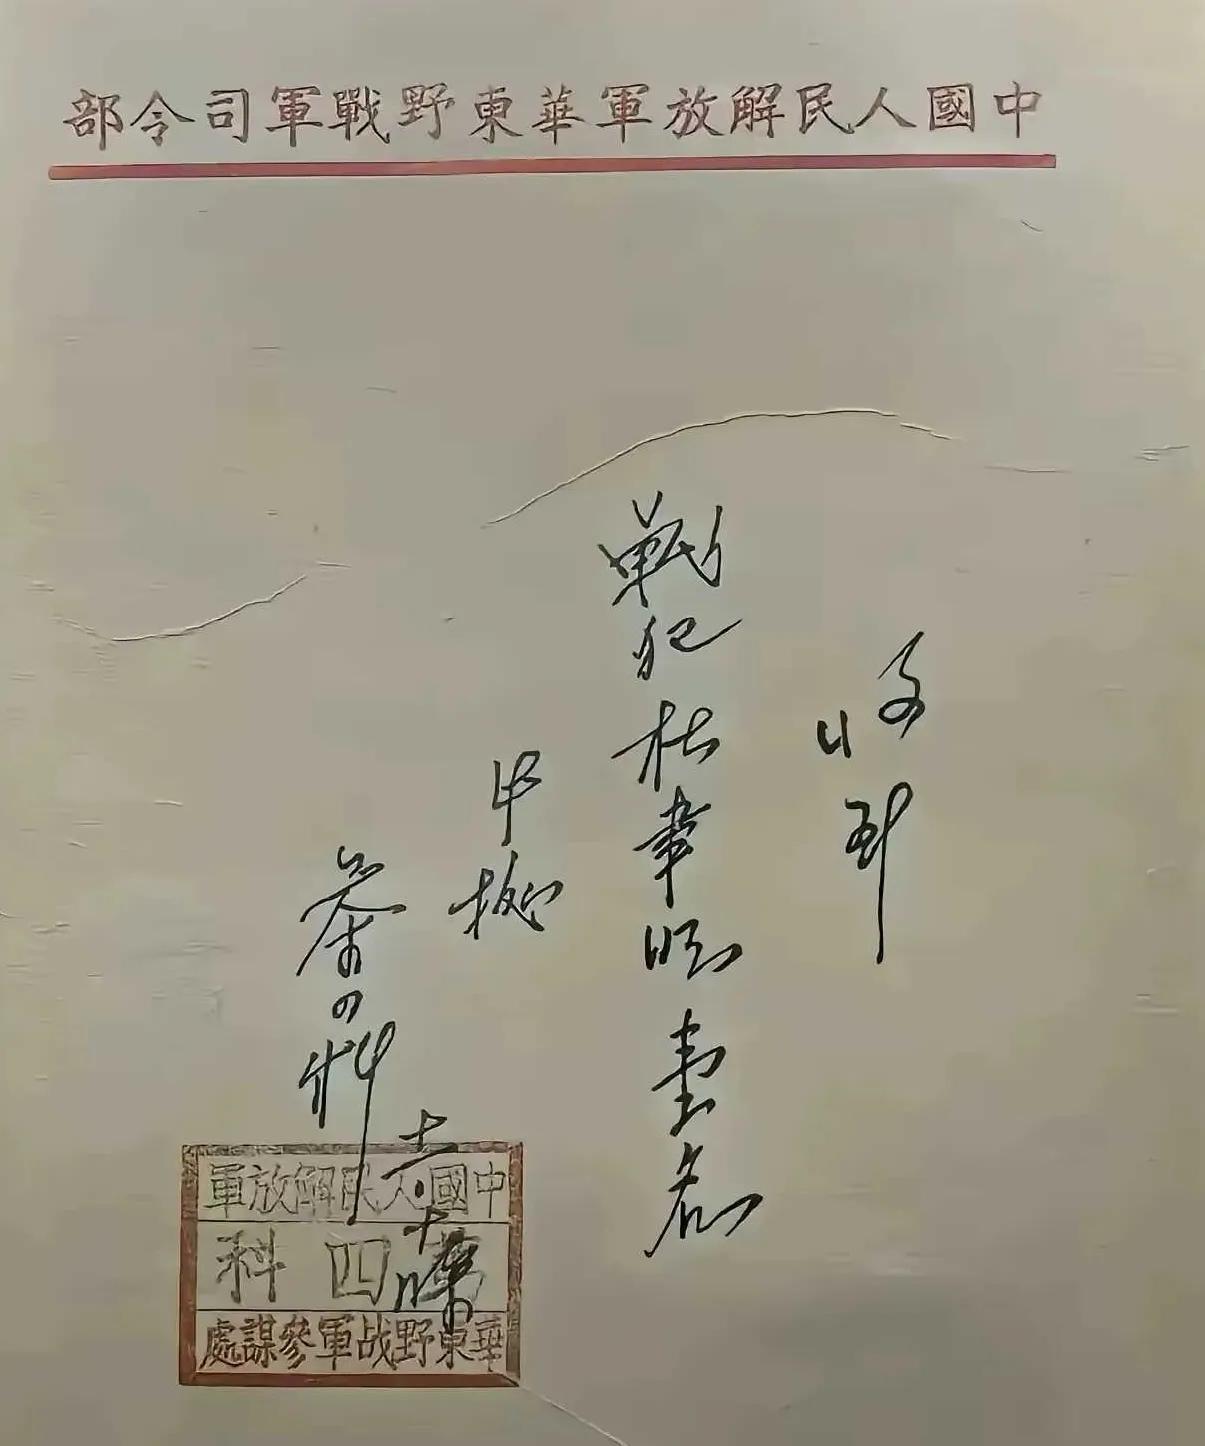 中國人民解放軍華東野戰軍司令部
收到
戰犯杜聿明壹名
此據
参四科
中國人民解放軍
四科
華東野战軍參謀處